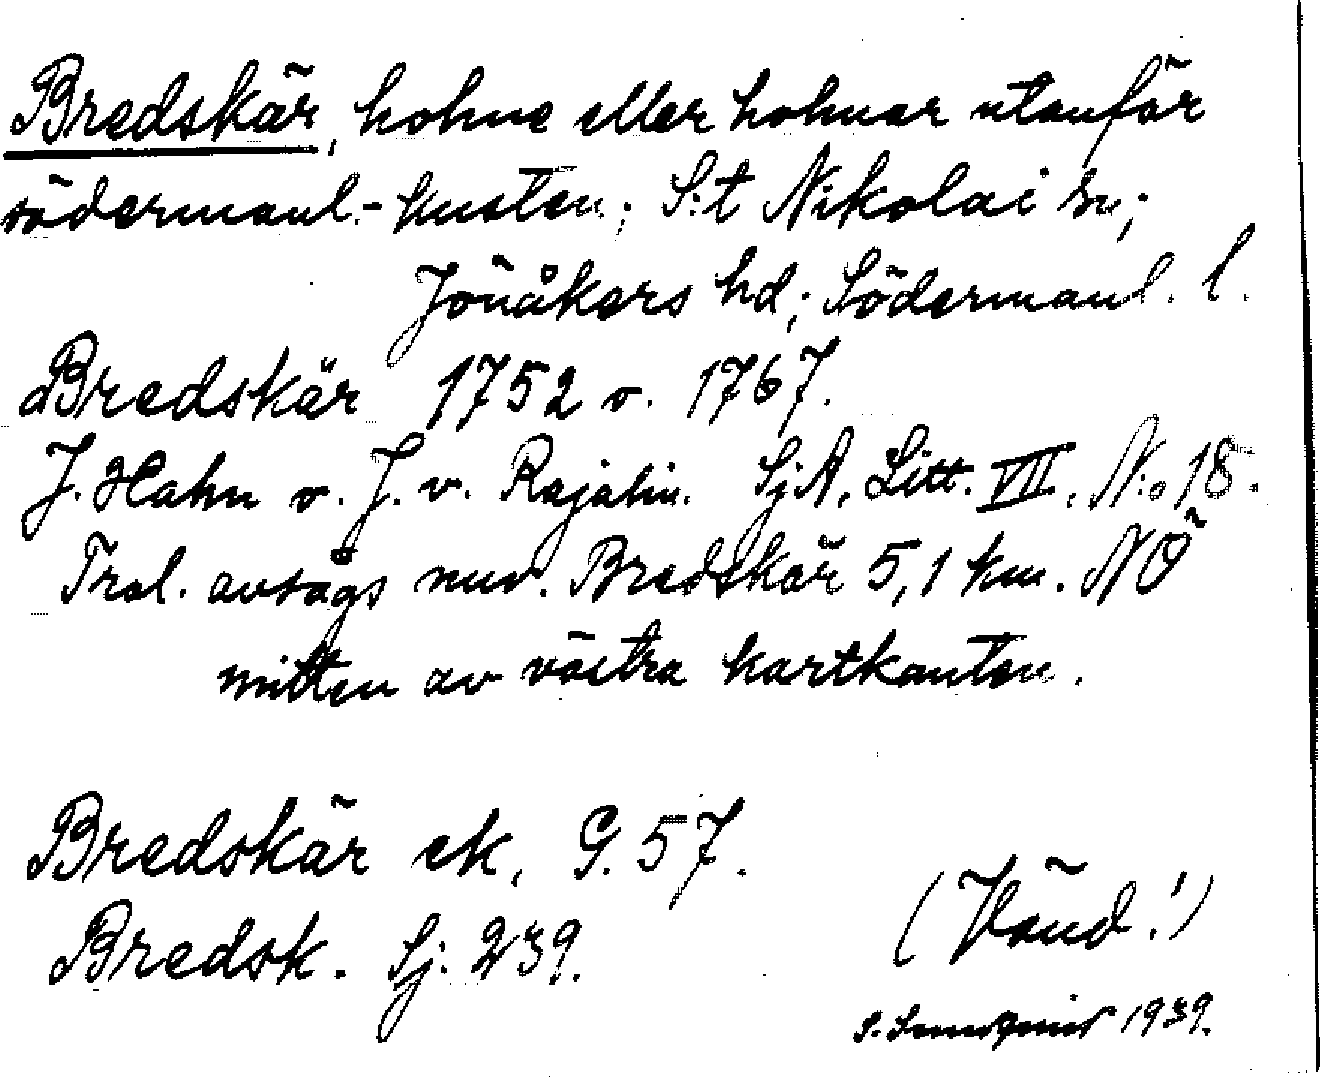 Bredskär, holme eller holmar utanför
södermanl.-kusten; S:t Nikolai sn;
Jönåkers hd; Södermanl. l.
Bredskär 1752 o. 1767.
J. Hahn o. J. v. Rajalin. SjA, Litt. VII, N:o 18.
Trol. avsågs nuv. Bredskär 5,1 km. NÖ
mitten av västra kartkanten.
Bredskär ek, G. 57.
Bredsk. Sj. 239.
(Vänd!)
S. 1939.